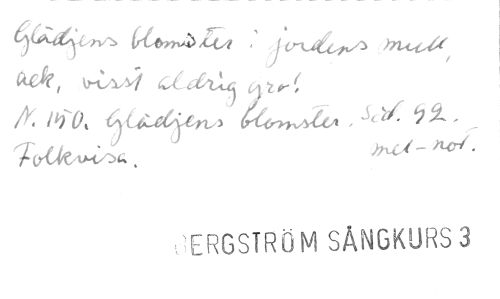 Glädjens blomster i jordens mull,
ack, visst aldrig gro!
N. 150. Glädjens blomster. Sid. 92.
Folkvisa. mel-not.
BERGSTRÖM SÅNGKURS 3